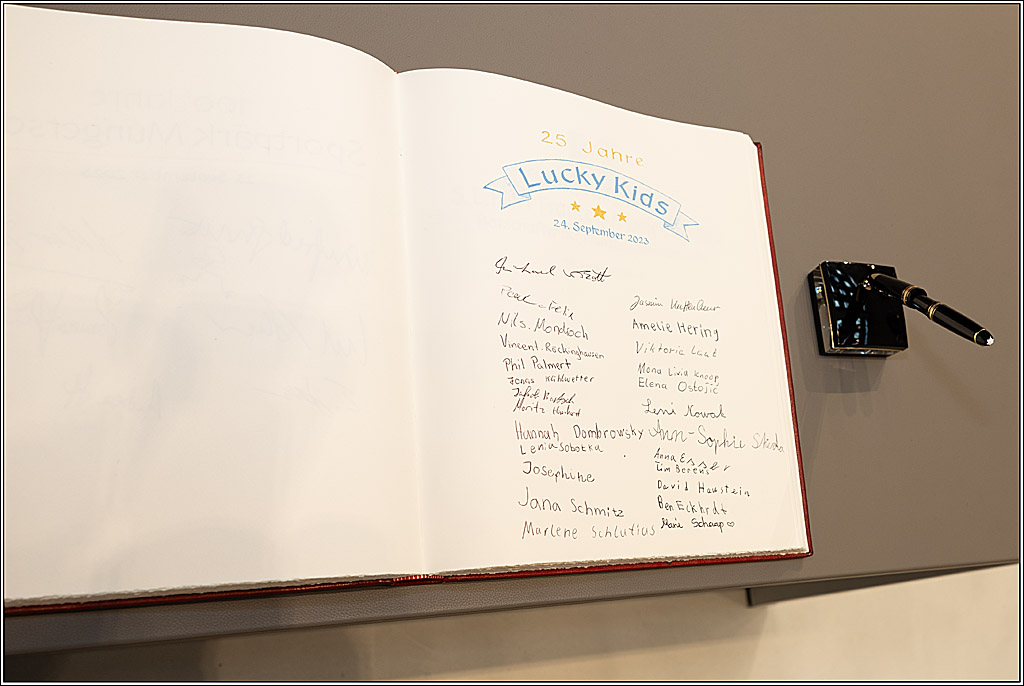 25 Jahre
Lucky Kids
24. September 2023
Nils. Mondroch
Vincent. Reckinghausen
Phil Palmert
Jonas Kühlwetter
Moritz
Hannah Dombrowsky
Lenia Sobotka
Josephine
Jana Schmitz
Marlene Schlutius
Jasmin
Amelie Hering
Viktoria Laat
Mona Livia Knoop
Elena Ostojić
Leni Nowak
Ann-Sophie
Anna Esser
Tim Berens
David Haustein
Ben Eckhrdt
Marie Schaap